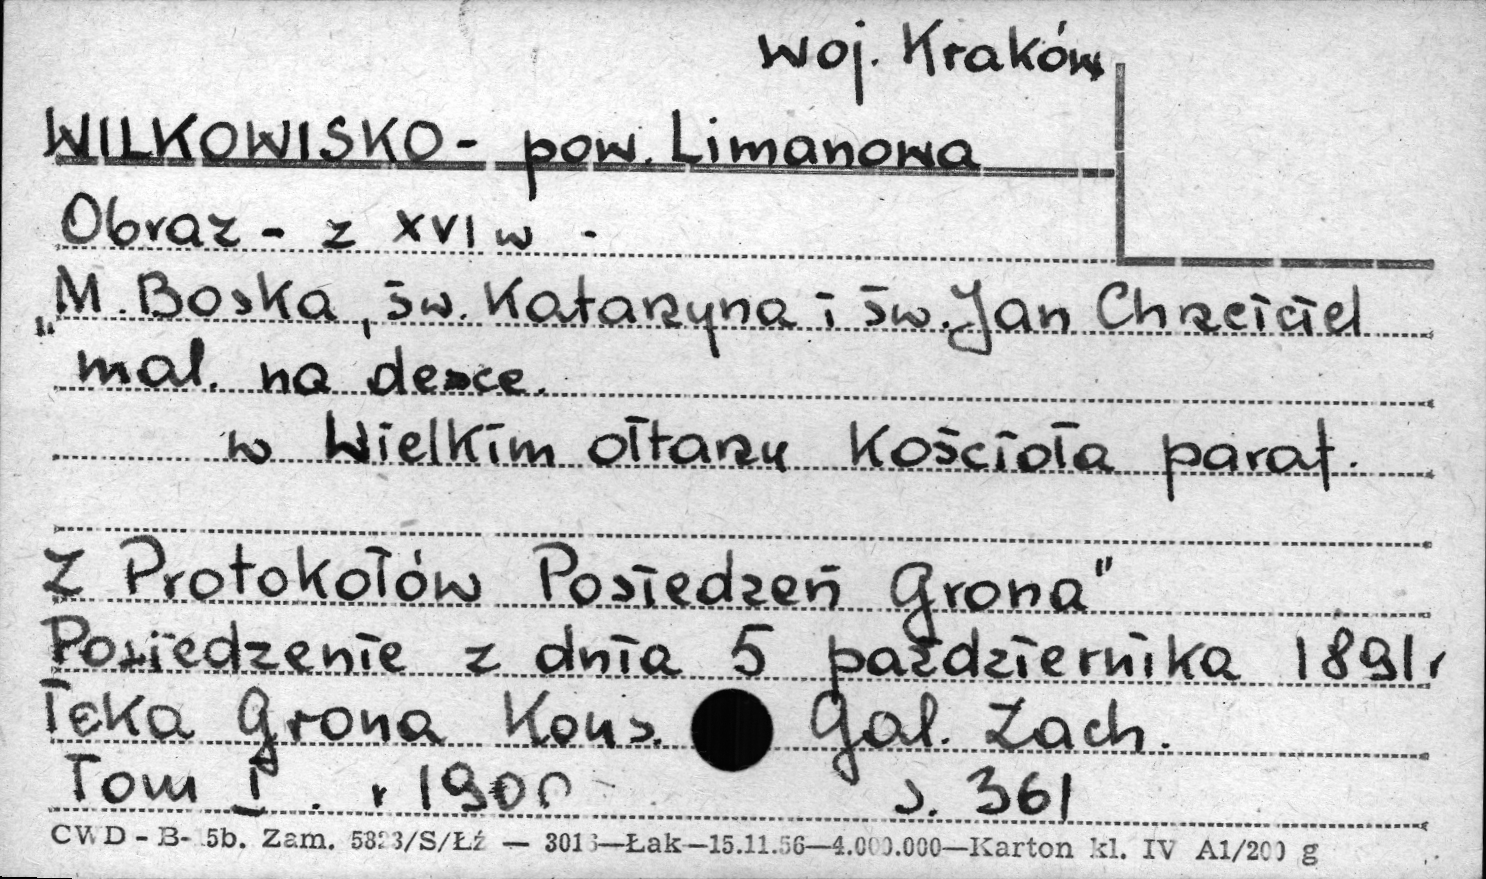 woj. Kraków
WILKOWISKO - pow. Limanowa
Obraz - z XVI w -
„M. Boska, św. Katarzyna i św. Jan Chrzciciel
mal. na desce.
w Wielkim ołtarzu Kościoła paraf.
Z Protokołów Posiedzeń Grona"
Posiedzenie z dnia 5 października 1891 r
Teka Grona Kons. Gal. Zach.
Tom I. r 1900 s. 361
CWD - B- 5b. Zam. 5823/S/Łź — 3016—Łak—15.11.56—4.000.000—Karton kl. IV A1/200 g